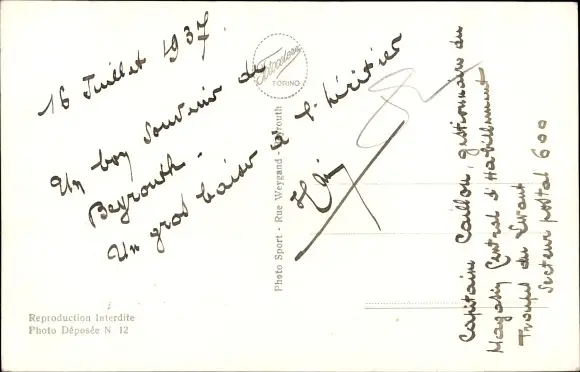 16 Juillet 1937.
Un bon souvenir de
Beyrouth -
Un gros baiser à l'héritier
Fotocelere
TORINO
Photo Sport - Rue Weygand - Beyrouth
Capitaine Caillou, gestionnaire du
Magasin Central d'Habillement
Troupes du Levant
Secteur postal 600
Reproduction Interdite
Photo Déposée N 12